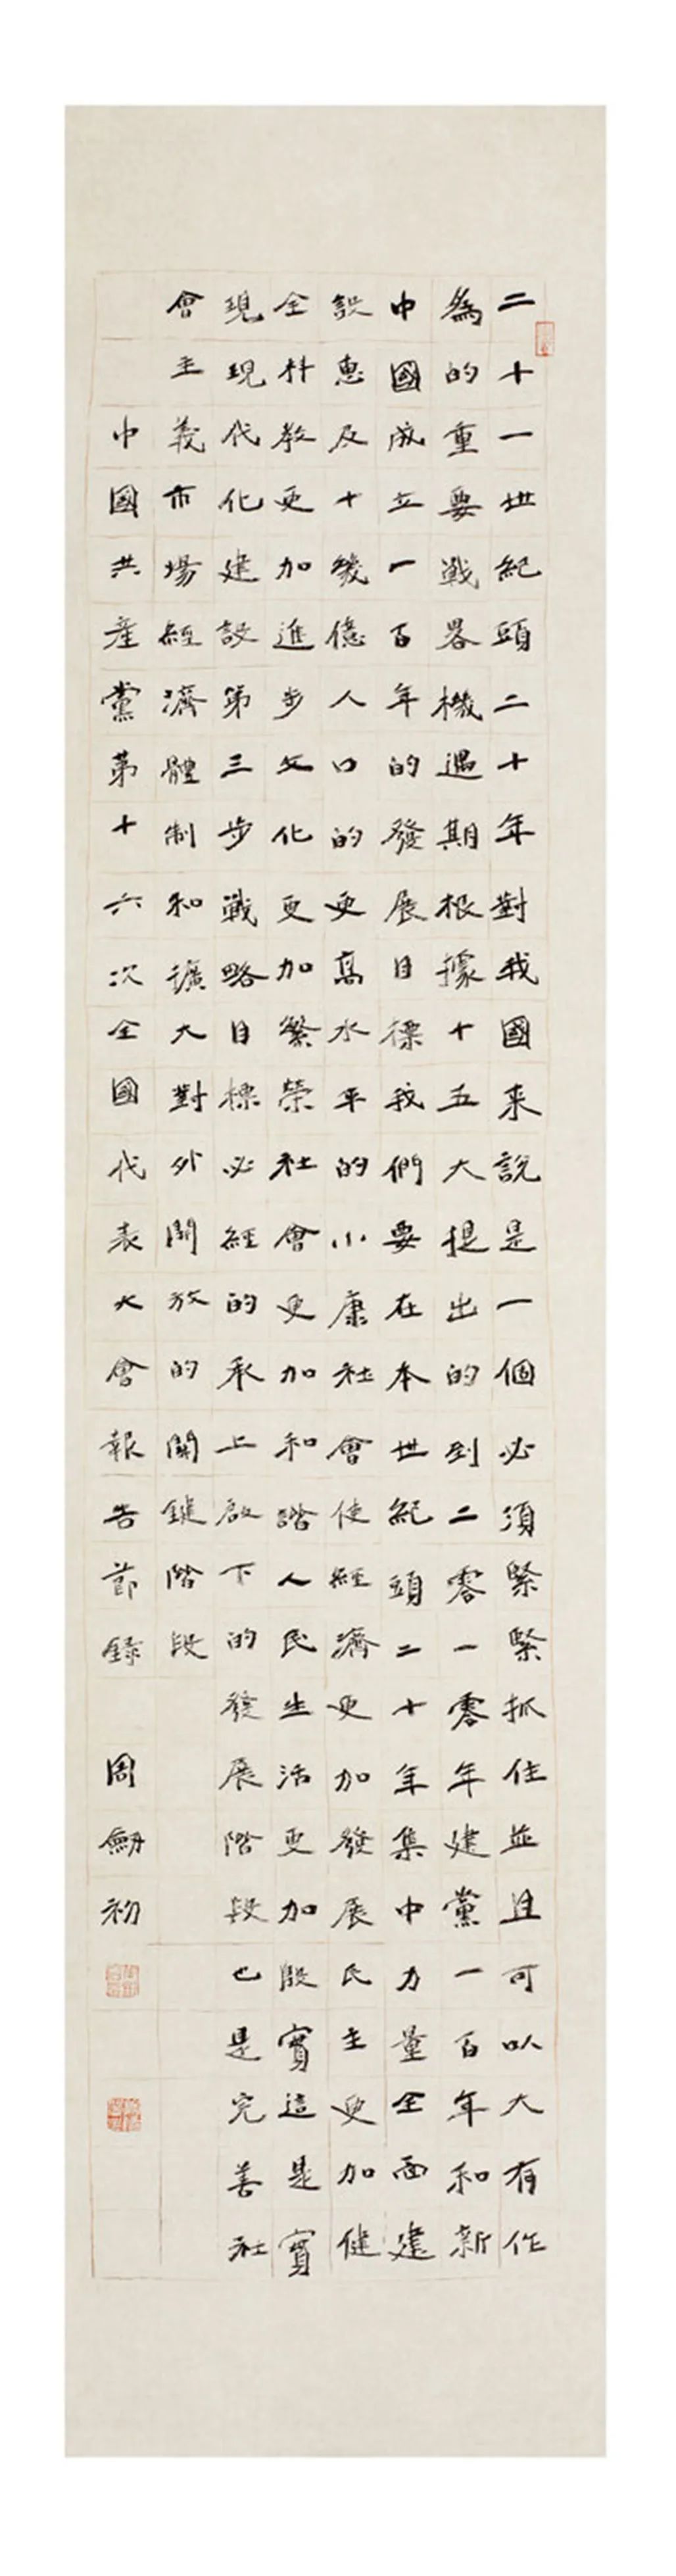 二十一世紀頭二十年對我國来說是一個必須緊緊抓住並且可以大有作
為的重要戰畧機遇期根據十五大提出的到二零一零年建黨一百年和新
中國成立一百年的發展目標我們要在本世紀頭二十年集中力量全面建
設惠及十幾億人口的更高水平的小康社會使經濟更加發展民主更加健
全科教更加進步文化更加繁榮社會更加和諧人民生活更加殷實這是實
現現代化建設第三步戰略目標必經的承上啟下的發展階段也是完善社
會主義市場經濟體制和擴大對外開放的關鍵階段
中國共產黨第十六次全國代表大會報告節録 周劒初